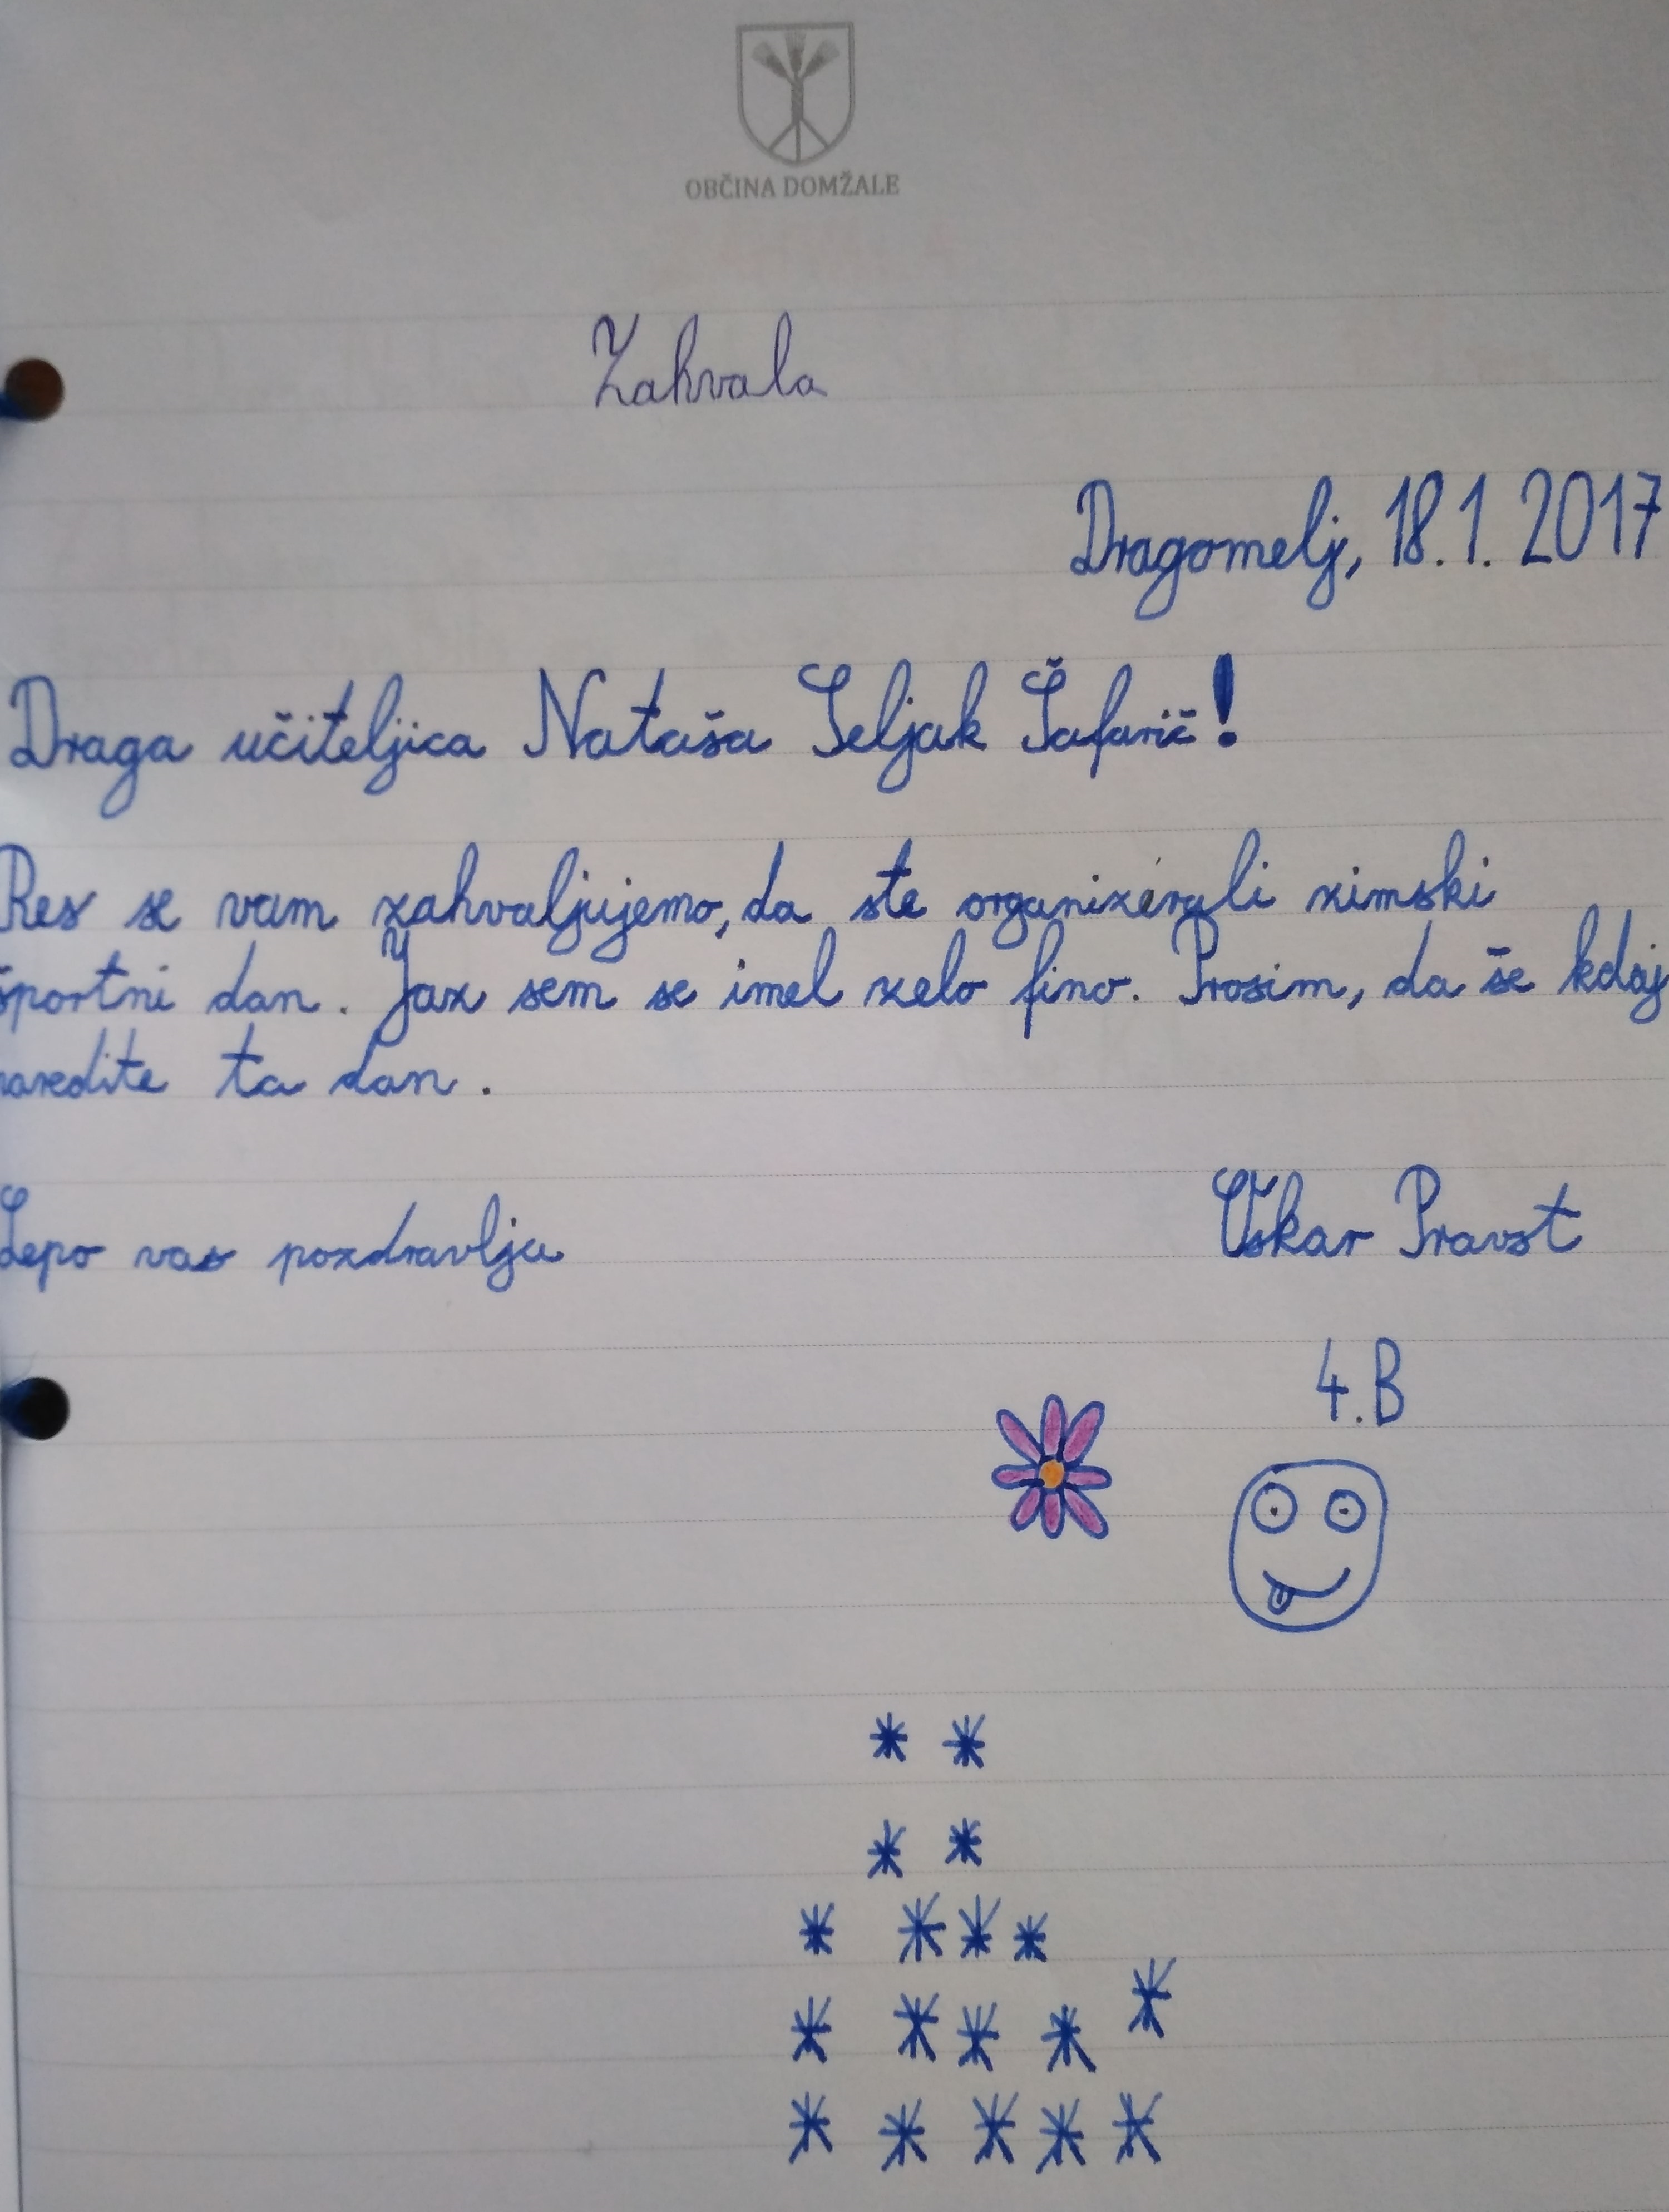 OBČINA DOMŽALE
Zahvala
Dragomelj, 18.1. 2017
Draga učiteljica Nataša Seljak Šafarič!
Res se vam zahvaljujemo, da ste organizerali zimski
športni dan. Jaz sem se imel zelo fino. Prosim, da še kdaj
naredite ta dan.
Lepo vas pozdravlja Oskar Pravst
4.B